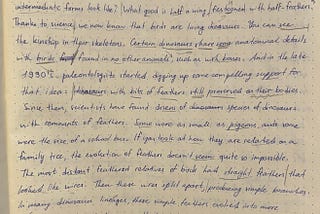 intermediate forms look like? What good is half a wing / festooned with half-feathers?
Thanks to science, we now know that birds are living dinosaurs. You can see
the kinship in their skeletons. Certain dinosaurs have anatomical details
with birds found in no other animals, such as wish bones. And in the late
1990s, paleontologists started digging up some compelling support for
that idea: / dinosaurs with bits of feathers still preserved on their bodies.
Since then, scientists have found dozens of dinosaurs species of dinosaurs
with remnants of feathers. Some were as small as pigeons, and some
were the size of a school bus. If you look at how they are related on a
family tree, the evolution of feathers doesn't seem quite so impossible.
The most distant feathered relatives of birds had straight feathers that
looked like wires. Then these wires split apart, / producing simple branches.
In many dinosaur lineages, these simple feathers evolved into more